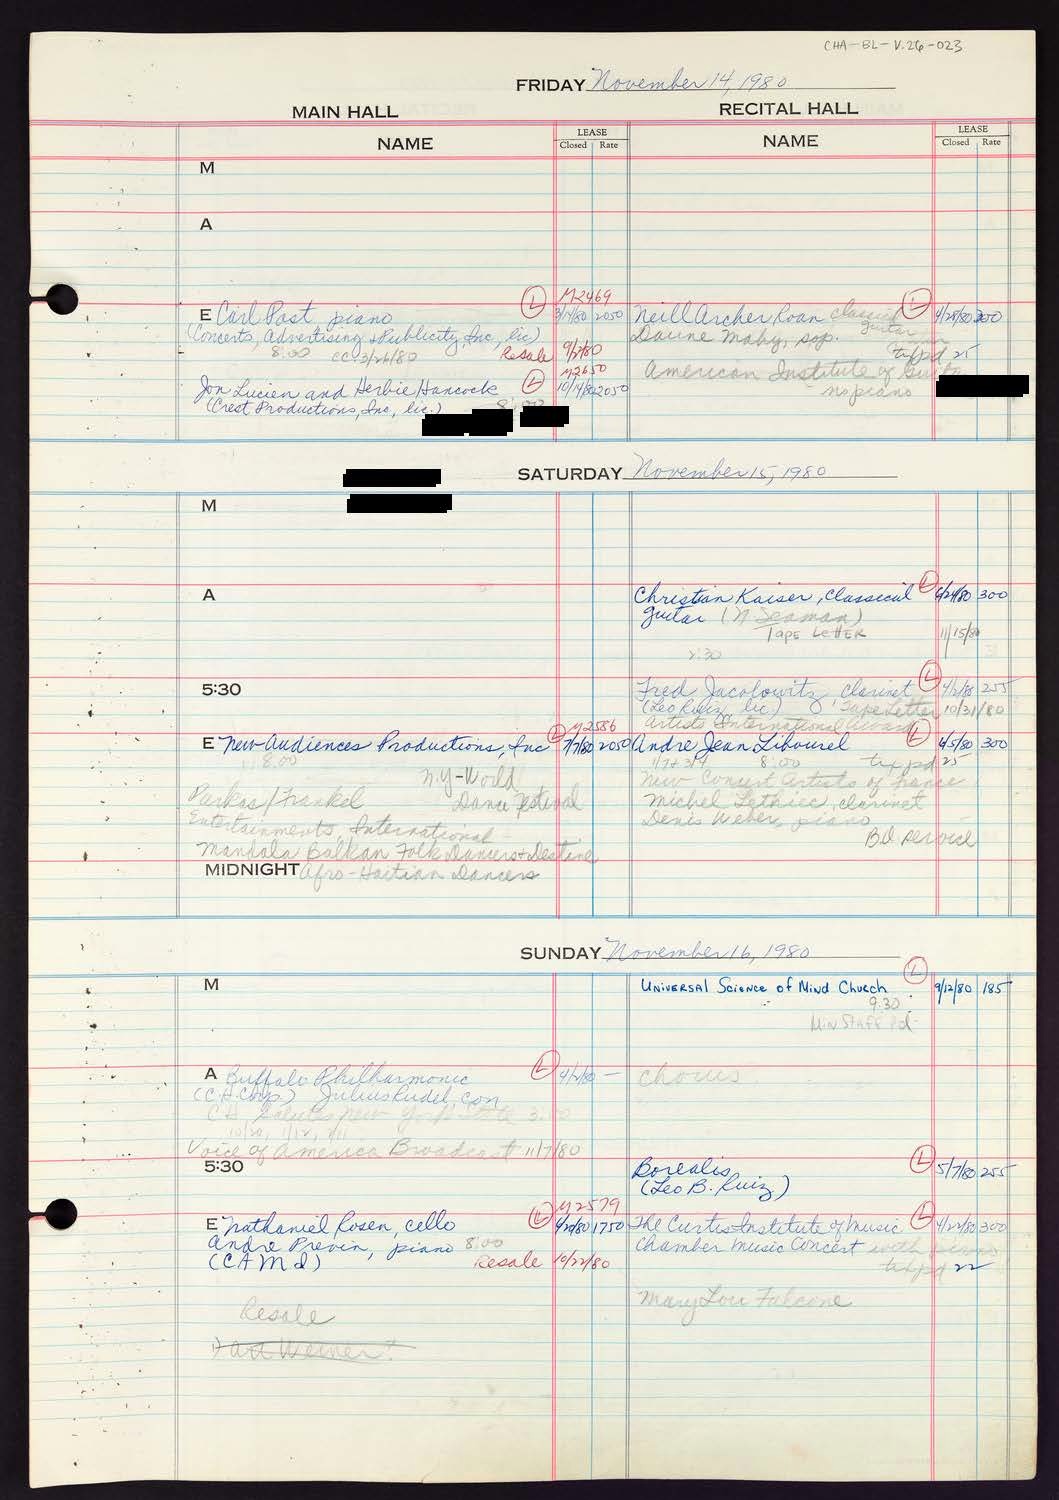 CHA-BL-V.26-023
FRIDAY November 14, 1980
MAIN HALL
RECITAL HALL
NAME
LEASE
Closed Rate
NAME
LEASE
Closed Rate
M
A
E Carl Post piano
(Concerts, Advertising & Publicity, Inc, lic)
8:00 cc 3/26/80
Resale 9/2/80
L
M2469
2050
Jon Lucien and Herbie Hancock
(Crest Productions, Inc, lic.) 8:00
L
M2650
10/14/80 2050
Neill Archer Roan classical
guitar
L
4/28/80 300
Daune Mahy, sop.
tix pd 25
American Institute of Guitar
no piano
SATURDAY November 15, 1980
M
A
Christian Kaiser, classical
guitar (N Seaman)
L
6/24/80 300
TAPE LETTER 11/15/80
2:30
5:30
Fred Jacolowitz clarinet
L
4/2/80 255
(Leo Ruiz, lic) Tape Letter 10/31/80
Artists International Award
E New Audiences Productions, Inc
L
M2586
7/7/80 2050
8:00
N.Y-World
Dance Festival
Parkas/Frankel
Entertainments, International
Mandala Balkan Folk Dancers & Destine
MIDNIGHT Afro-Haitian Dancers
Andre Jean Libourel
L
6/5/80 300
8:00 tix pd 25
New Concert Artists of France
Michel Lethiec, clarinet
Denis Weber, piano
Bd service
SUNDAY November 16, 1980
M
UNIVERSAL SCIENCE OF MIND CHURCH
L
9/12/80 185
9:30
Min Staff Pd
A Buffalo Philharmonic
L
4/2/80 —
(C.H. Corp.) Julius Rudel, con
CH Salutes New York State 3:00
Voice of America Broadcast 11/7/80
chorus
5:30
Borealis
(Leo B. Ruiz)
L
5/7/80 255
E Nathaniel Rosen, cello
L
M2579
1750
Andre Previn, piano 8:00
(CAMI)
Resale 10/22/80
Resale
Art Weiner
The Curtis Institute of Music
L
4/22/80 300
Chamber Music Concert with piano
tix pd 22
Mary Lou Falcone